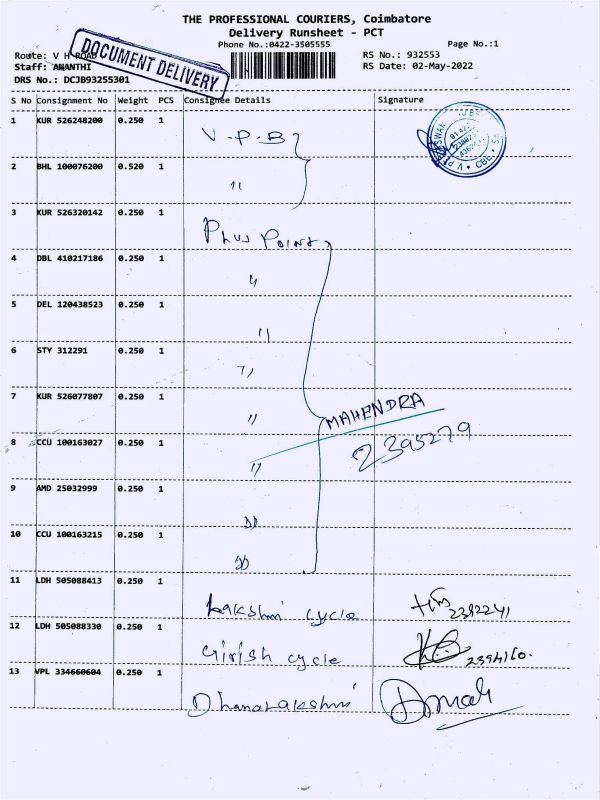 THE PROFESSIONAL COURIERS, Coimbatore
Delivery Runsheet - PCT
Phone No.:0422-3505555
Page No.:1
Route: V H ROAD
RS No.: 932553
Staff: ANANTHI
RS Date: 02-May-2022
DRS No.: DCJB93255301
DOCUMENT DELIVERY
S No Consignment No Weight PCS Consignee Details Signature
1 KUR 526248200 0.250 1 V.P.B
2 BHL 100076200 0.520 1 "
3 KUR 526320142 0.250 1 Plus Point
4 DBL 410217186 0.250 1 "
5 DEL 120438523 0.250 1 "
6 STY 312291 0.250 1 "
7 KUR 526077807 0.250 1 "
MAHENDRA
2395279
8 CCU 100163027 0.250 1 "
9 AMD 25032999 0.250 1 "
10 CCU 100163215 0.250 1 "
11 LDH 505088413 0.250 1 Lakshmi cycle 2392241
12 LDH 505088330 0.250 1 Girish cycle
13 VPL 334660604 0.250 1 Dhanalakshmi